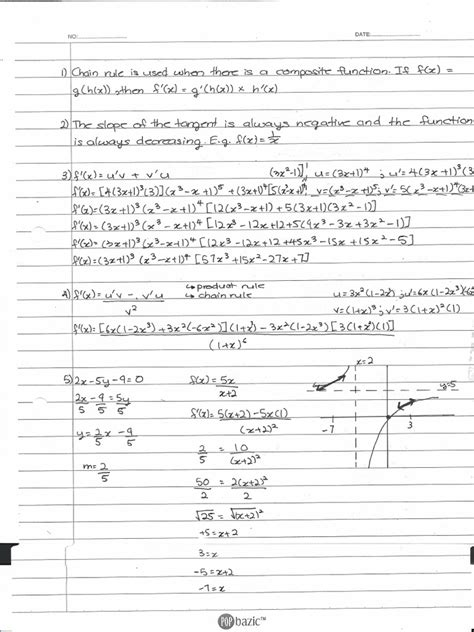 NO:
DATE:
1) Chain rule is used when there is a composite function. If f(x) =
g(h(x)), then f'(x) = g'(h(x)) × h'(x)
2) The slope of the tangent is always negative and the function
is always decreasing. E.g. f(x) = 1/x
3) f'(x) = u'v + v'u
(3x²-1)]
u = (3x+1)⁴ ; u' = 4(3x+1)³(3
f'(x) = [4(3x+1)³(3)](x³-x+1)⁵ + (3x+1)⁴[5(x³-x+1)⁴
v = (x³-x+1)⁵; v' = 5(x³-x+1)⁴(3x
f'(x) = (3x+1)³(x³-x+1)⁴[12(x³-x+1) + 5(3x+1)(3x²-1)]
f'(x) = (3x+1)³(x³-x+1)⁴[12x³-12x+12+5(9x³-3x+3x²-1)]
f'(x) = (3x+1)³(x³-x+1)⁴[12x³-12x+12+45x³-15x+15x²-5]
f'(x) = (3x+1)³(x³-x+1)⁴[57x³+15x²-27x+7]
4) f'(x) = u'v - v'u / v²
↳ product rule
↳ chain rule
u = 3x²(1-2x³) ; u' = 6x(1-2x³)
v = (1+x)³ ; v' = 3(1+x)²(1)
f'(x) = [6x(1-2x³) + 3x²(-6x²)](1+x)³ - 3x²(1-2x³)[3(1+x)²(1)]
(1+x)⁶
5) 2x-5y-9=0
2x/5 - 9/5 = 5y/5
y = 2/5 x - 9/5
m = 2/5
f(x) = 5x/x+2
f'(x) = 5(x+2) - 5x(1) / (x+2)²
2/5 = 10/(x+2)²
50/2 = 2(x+2)²/2
√25 = √(x+2)²
+5 = x+2
3 = x
-5 = x+2
-7 = x
x=2
y=5
-7
3
POP bazic™